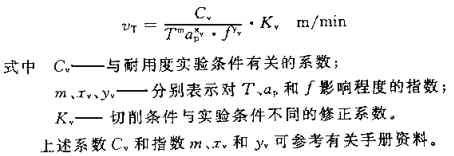 v_T = C_v / (T^m a_p^{x_v} · f^{y_v}) · K_v m/min
式中 C_v——与耐用度实验条件有关的系数；
m、x_v、y_v——分别表示对 T、a_p 和 f 影响程度的指数；
K_v——切削条件与实验条件不同的修正系数。
上述系数 C_v 和指数 m、x_v 和 y_v 可参考有关手册资料。